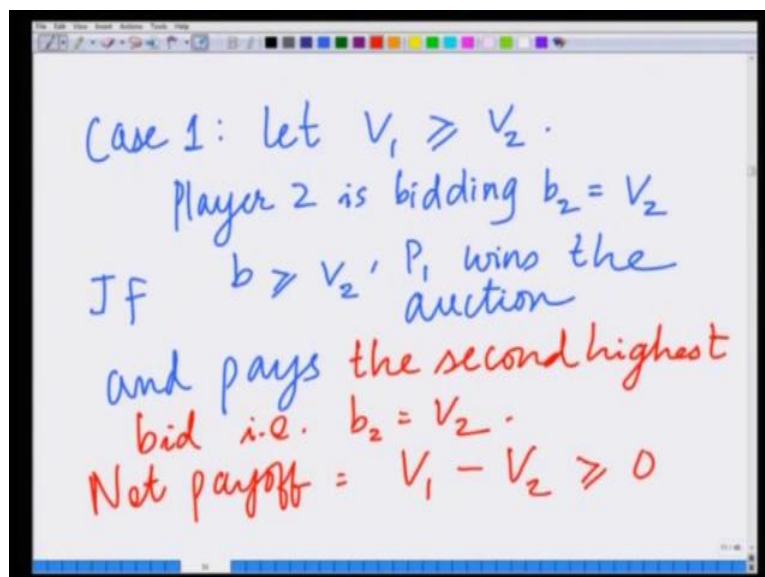 File Edit View Insert Actions Tools Help
Case 1: let V₁ ⩾ V₂.
Player 2 is bidding b₂ = V₂
If b ⩾ V₂, P₁ wins the
auction
and pays the second highest
bid i.e. b₂ = V₂.
Net payoff = V₁ − V₂ ⩾ 0